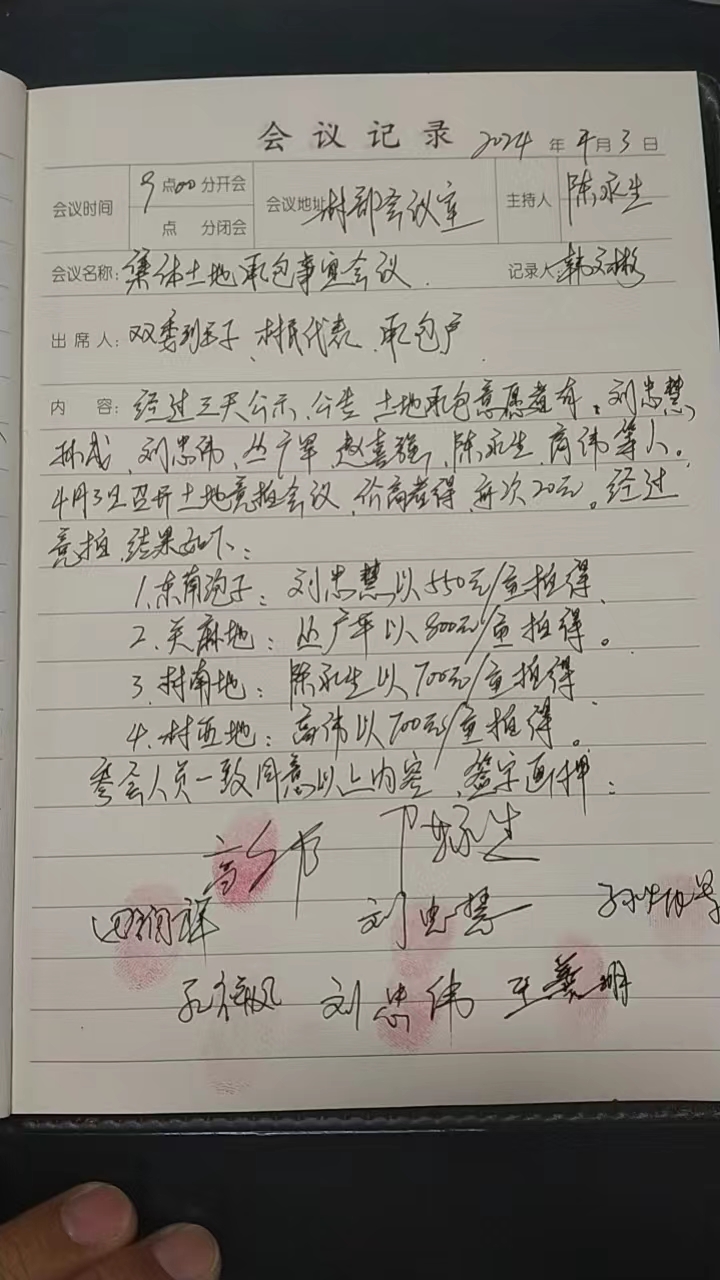 会议记录 2024 年 4 月 3 日
会议时间 9 点 00 分开会 会议地址 村部会议室 主持人 陈永生
点 分闭会
会议名称: 集体土地承包事宜会议. 记录人: 韩文彬
出席人: 双委班子、村民代表、承包户
内 容: 经过三天公示、公告 土地承包意愿者有: 刘忠慧
孙成、刘忠伟、丛广军、赵喜强、陈永生、高伟等人。
4月3日召开土地竞拍会议、价高者得、每次20元。经过
竞拍、结果如下:
1、东南泡子: 刘忠慧以550元/亩拍得、
2、关麻地: 丛广军以800元/亩拍得。
3、村南地: 陈永生以700元/亩拍得
4、村西地: 高伟以700元/亩拍得。
参会人员一致同意以上内容、签字画押:
高伟 陈永生
刘忠慧
刘忠伟